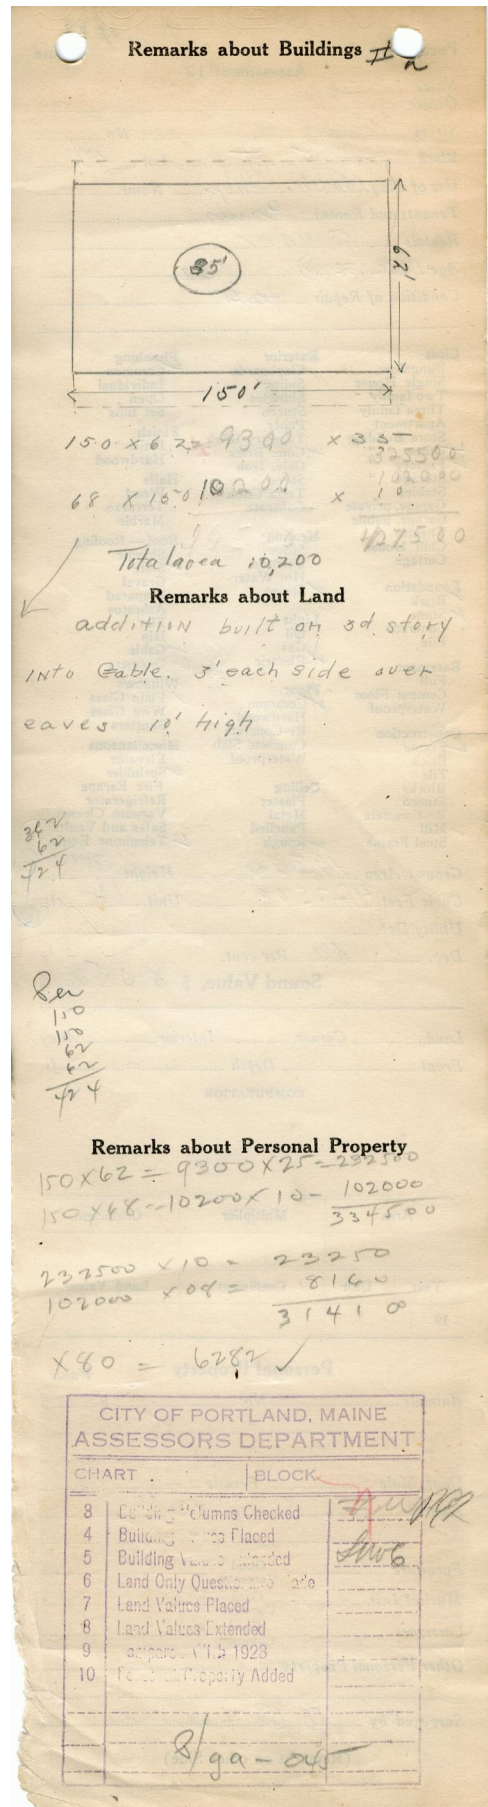 Remarks about Buildings
35'
62'
150'
150 x 62 = 9300 x 35
325500
102000
68 x 150 10200 x 10
427500
Total area 10,200
Remarks about Land
addition built on 3d story
INTO Gable. 3' each side over
eaves 10' high
362
62
424
Per
150
150
62
62
424
Remarks about Personal Property
150 X 62 = 9300 X 25 = 232500
150 X 68 = 10200 X 10 - 102000
334500
232500 X 10 = 23250
102000 X 08 = 8160
31410
X 80 = 6282 ✓
CITY OF PORTLAND, MAINE
ASSESSORS DEPARTMENT
CHART BLOCK
3 Building Columns Checked
4 Building Placed
5 Building Values Extended
6 Land Only
7 Land Values Placed
8 Land Values Extended
9 With 1923
10 Property Added
8/ga - a45